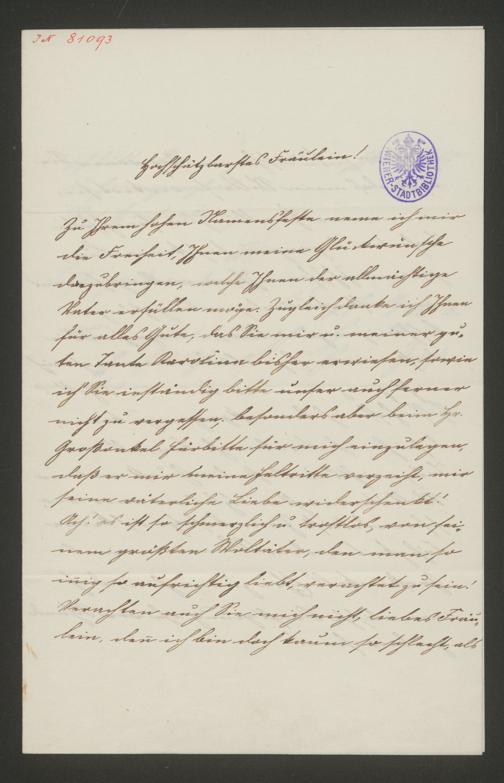 IN 81093
WIENER-STADTBIBLIOTHEK
Hochschätzbarstes Fräulein!
Zu Ihrem hohen Namensfeste neme ich mir
die Freiheit, Ihnen meine Glückwünsche
darzubringen, welche Ihnen der allmächtige
Vater erfüllen möge. Zugleich danke ich Ihnen
für alles Gute, das Sie mir u. meiner gu-
ten Tante Karolina bisher erwiesen, sowie
ich Sie inständig bitte unser auch ferner
nicht zu vergessen, besonders aber beim Hr.
Großonkel Fürbitte für mich einzulegen,
daß er mir meine Feltritte verzeiht, mir
seine väterliche Liebe widerschenkt!
Ach! es ist so schmerzlich u. trostlos, von sei-
nem größten Woltäter, den man so
iñig so aufrichtig liebt, verachtet zu sein!
Verachten auch Sie mich nicht, liebes Fräu-
lein, deñ ich bin doch kaum so schlecht, als